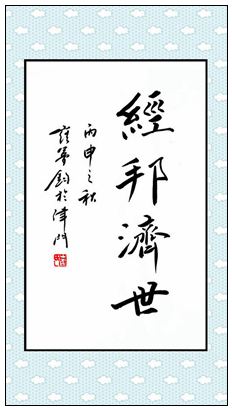 經邦濟世
丙申之秋
於津門